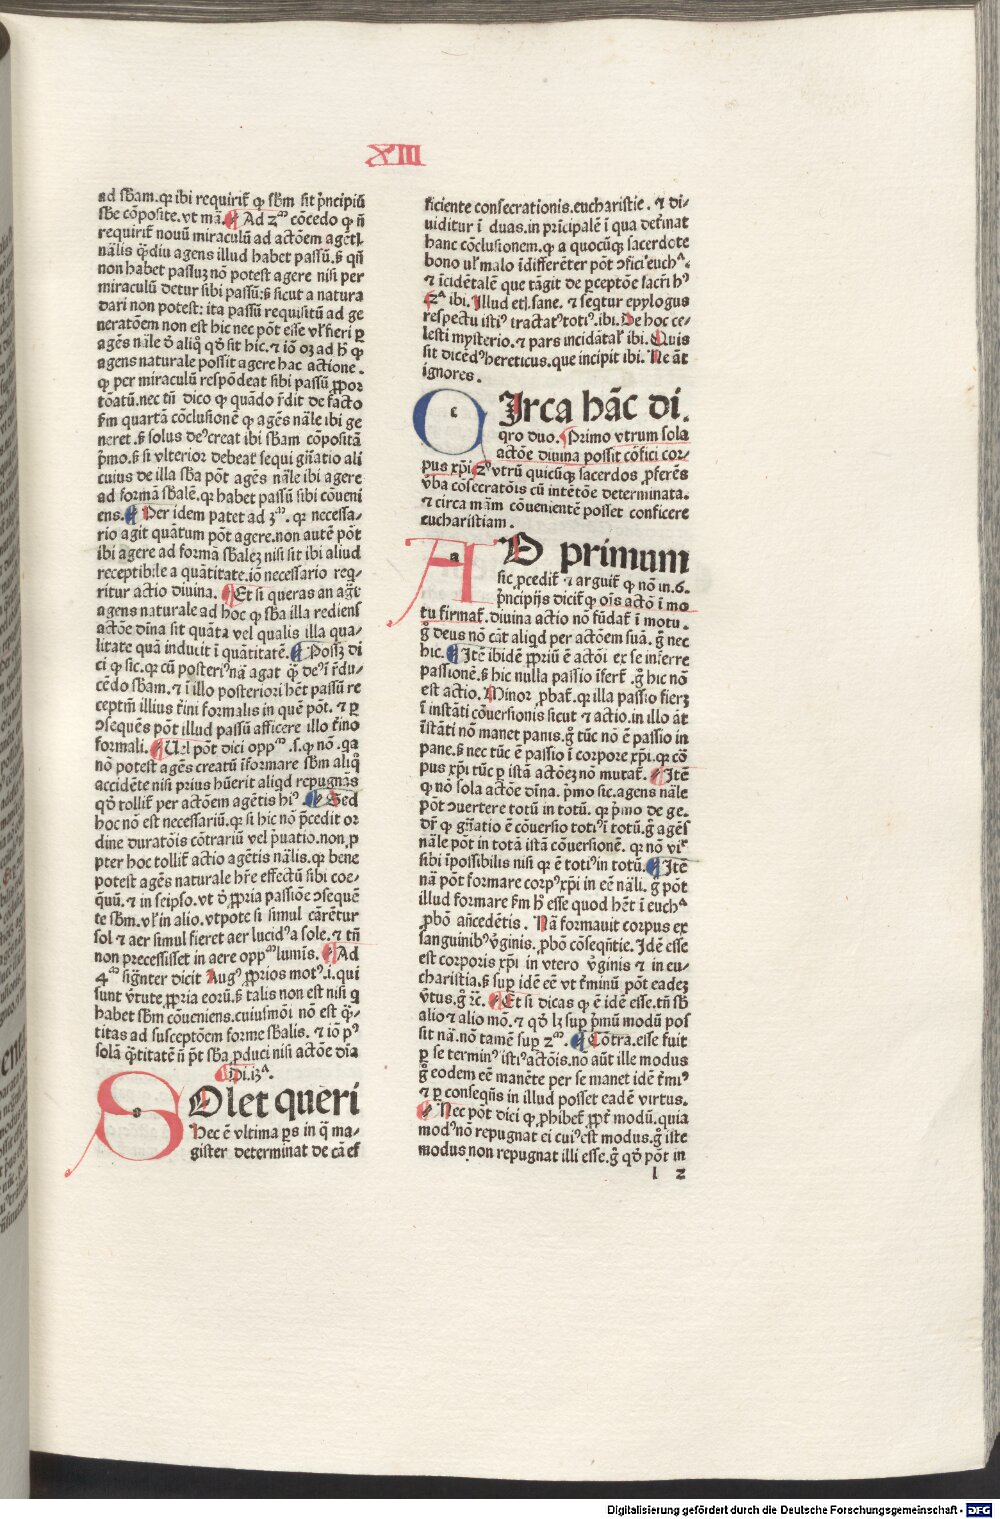 XIII
ad sƀam.qꝛ ibi requirit᷑ ꝙ sƀm sit p̄ncipiū
sƀe cōposite.vt mā. Ad 2ᵐ cōcedo ꝙ nō
requirit᷑ nouū miraculū ad actōem agētꝭ
nālis q̄diu agens illud habet passū.ẜ qn̄
non habet passuꝫ nō potest agere nisi per
miraculū detur sibi passū:ẜ sicut a natura
dari non potest: ita passū requisitū ad ge
neratōem non est hic nec pōt esse vl̓ fieri ꝑ
agēs nāle ꝺ̄ aliq̄ qꝺ̓ sit hic.⁊ iō oꝫ ad h̄ ꝙ
agens naturale possit agere hac actione.
ꝙ per miraculū respōdeat sibi passū ꝓpor
tōatū.nec tn̄ dico ꝙ quādo r̄dit de facto
ẜm quartā cōclusionē ꝙ agēs nāle ibi ge
neret.ẜ solus deꝰ creat ibi sƀam cōpositā
p̄mo.ẜ si vlterior debeat᷑ sequi gn̄atio ali
cuius de illa sƀa pōt agēs nāle ibi agere
ad formā sƀalē.qꝛ habet passū sibi cōueni
ens. Per idem patet ad 3ᵐ. qꝛ necessa-
rio agit quātum pōt agere.non autē pōt
ibi agere ad formā sƀaleꝫ nisi sit ibi aliud
receptibile a quātitate.iō necessario req-
ritur actio diuina. Et si queras an agēs
agens naturale ad hoc ꝙ sƀa illa rediens
actōe diīna sit quāta vel qualis illa qua-
litate quā induxit ī quātitatē. Possꝫ di
ci ꝙ sic.qꝛ cū posteriꝰ nā agat q̄ deꝰ ī r̄du-
cēdo sƀam.⁊ ī illo posteriori hēt passū re
ceptīm illius t̄ini formalis in quē pōt.⁊ ꝑ
ↄsequēs pōt illud passū afficere illo t̄ino
formali. Uel pōt dici oppᵐ.s.ꝙ nō.qa
nō potest agēs creatū īformare sƀm aliq̄
accidēte nisi prius hūerit aliqd repugnās
qꝺ̓ tollit᷑ per actōem agētis hiꝰ. Sed
hoc nō est necessariū.qꝛ si hic nō p̄cedit or
dine duratōis cōtrariū vel p̄uatio.non ꝓ
pter hoc tollit᷑ actio agētis nālis.qꝛ bene
potest agēs naturale hr̄e effectū sibi coe-
q̄uū.⁊ in seipso.vt ꝺ̄ ꝓpria passiōe ↄsequē
te sƀm.vl̓ in alio.vtpote si simul cārētur
sol ⁊ aer simul fieret aer lucidꝰ a sole.⁊ tn̄
non precessisset in aere oppᵐ lumīs. Ad
4ᵐ signn̄ter dicit Augꝰ ꝓprios motꝰ.i.qui
sunt v̄tute ꝓpria eorū.ẜ talis non est nisi q
habet sƀm cōueniens.cuiusmōi nō est q̄-
titas ad susceptōem forme sƀalis.⁊ iō pꝰ
solā q̄titatē nō pōt sƀa ꝓduci nisi actōe diīa
Di.13ᵃ.
SOlet queri
Hec ē vltima ꝑs in q̄ ma-
gister determinat de cā ef
ficiente consecrationis.eucharistie.⁊ di-
uiditur ī duas.in pricipalē ī qua det̓minat
hanc cōclusionem.ꝙ a quocūqꝫ sacerdote
bono vl̓ malo īdifferēter pōt ↄfici euchᵃ.
⁊ īcidētalē que tāgit de ꝑceptōe sacr̄i hꝰ
2ᵃ ibi. Illud etꝭ.sane.⁊ seqtur epylogus
respectu istiꝰ tractatꝰ totiꝰ.ibi. De hoc ce-
lesti mysterio.⁊ pars incidētalꝭ ibi. Quis
sit dicēdꝰ hereticus.que incipit ibi. Ne āt
ignores.
CIrca hāc di.
qro duo. Primo vtrum sola
actōe diuina possit cōfici cor-
pus xp̄i. 2ꝰ vtrū quicūqꝫ sacerdos ꝓferēs
v̄ba cōsecratōis cū intētōe determinata.
⁊ circa mām cōuenientē posset conficere
eucharistiam.
AD primum
sic ꝓcedit᷑ ⁊ arguit᷑ ꝙ nō in.6.
p̄ncipijs dicit᷑ ꝙ oīs actō ī mo
tu firmat᷑.diuina actio nō fūdat᷑ ī motu.
g̊ deus nō cāt aliqd per actōem suā.g̊ nec
hic. Itē ibidē ꝓpriū ē actōi ex se inferre
passionē.ẜ hic nulla passio īfert᷑.g̊ hic nō
est actio. Minor ꝓbat᷑.qꝛ illa passio fieret
ī instāti cōuersionis sicut ⁊ actio.in illo āt
īstāti nō manet panis.g̊ tūc nō ē passio in
pane.ẜ nec tūc ē passio ī corpore xp̄i.qꝛ cō
pus xp̄i tūc ꝑ istā actōeꝫ nō mutat᷑. Itē
ꝙ nō sola actōe diīna.p̄mo sic.agens nāle
pōt ↄuertere totū in totū.qꝛ p̄mo de ge.
dr̄ ꝙ gn̄atio ē cōuersio totiꝰ ī totū.g̊ agēs
nāle pōt in totā istā cōuersionē.qꝛ nō vir̄
sibi īpossibilis nisi qꝛ ē totiꝰ in totū. Itē
nā pōt formare corpꝰ xp̄i in eē nāli.g̊ pōt
illud formare ẜm h̄ esse quod hēt ī euchᵃ
ꝓbō an̄cedētis. Nā formauit corpus ex
sanguinibꝰ v̓ginis.ꝓbō cōseqn̄tie. Idē esse
est corporis xp̄i in vtero v̓ginis ⁊ in eu-
charistia.ẜ suꝑ idē eē vt t̓minū pōt eadeꝫ
v̓tus.g̊ ⁊c. Et si dicas ꝙ ē idē esse.tn̄ sƀ
alio ⁊ alio mō.⁊ qꝺ̓ lꝫ suꝑ p̄mū modū pos
sit nā.nō tamē suꝑ 2ᵐ. Cōtra.esse fuit
ꝑ se terminꝰ istiꝰ actōis.nō aūt ille modus
g̊ eodem eē manēte per se manet idē t̓miꝰ
⁊ ꝑ conseqn̄s in illud posset eadē virtus.
Nec pōt dici ꝙ ꝓhibet᷑ ꝓpt̓ modū.quia
modꝰ nō repugnat ei cuiꝰ est modus.g̊ iste
modus non repugnat illi esse.g̊ qꝺ̓ pōt in
l 2
Digitalisierung gefördert durch die Deutsche Forschungsgemeinschaft - DFG